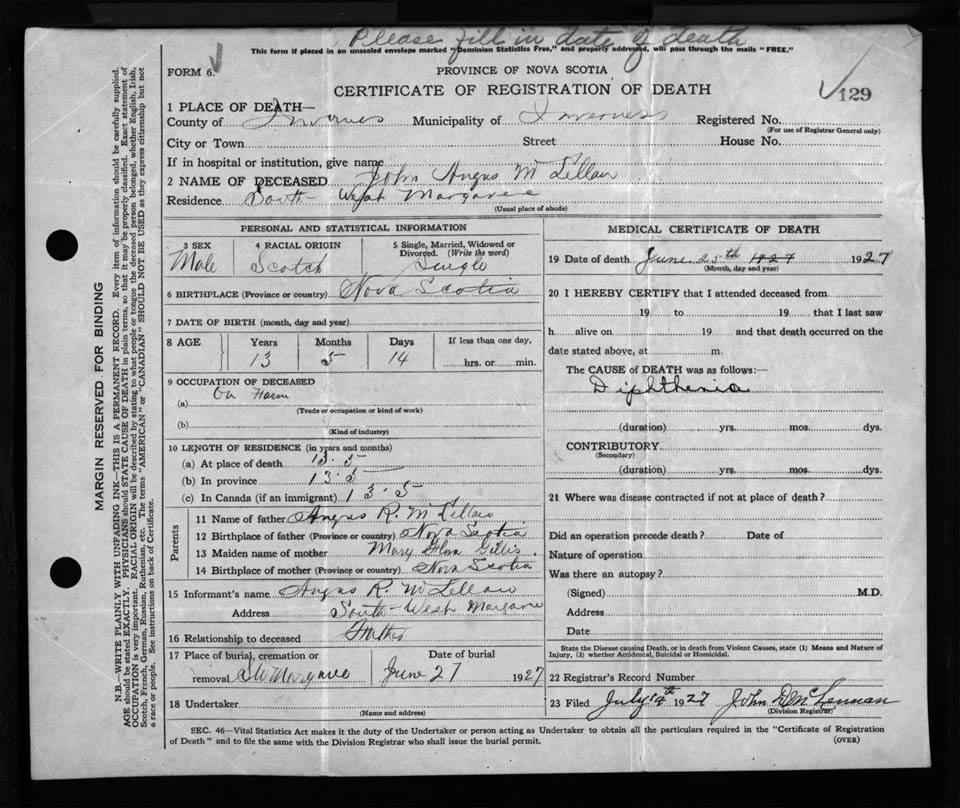 Please fill in date of death
This form if placed in an unsealed envelope marked "Dominion Statistics Free," and properly addressed, will pass through the mails "FREE."
FORM 6.
PROVINCE OF NOVA SCOTIA
CERTIFICATE OF REGISTRATION OF DEATH
129
1 PLACE OF DEATH—
County of Inverness Municipality of Inverness Registered No.
(For use of Registrar General only)
City or Town Street House No.
If in hospital or institution, give name
2 NAME OF DECEASED John Angus McLellan
Residence South West Margaree
(Usual place of abode)
PERSONAL AND STATISTICAL INFORMATION
3 SEX 4 RACIAL ORIGIN 5 Single, Married, Widowed or Divorced. (Write the word)
Male Scotch Single
6 BIRTHPLACE (Province or country) Nova Scotia
7 DATE OF BIRTH (month, day and year)
8 AGE Years Months Days If less than one day,
13 5 14 hrs. or min.
9 OCCUPATION OF DECEASED
(a) On Farm
(Trade or occupation or kind of work)
(b)
(Kind of industry)
10 LENGTH OF RESIDENCE (in years and months)
(a) At place of death 13.5
(b) In province 13.5
(c) In Canada (if an immigrant) 13.5
Parents
11 Name of father Angus R. McLellan
12 Birthplace of father (Province or country) Nova Scotia
13 Maiden name of mother Mary Flora Gillis
14 Birthplace of mother (Province or country) Nova Scotia
15 Informant's name Angus R. McLellan
Address South West Margaree
16 Relationship to deceased Father
17 Place of burial, cremation or Date of burial
removal SW Margaree June 27 1927
18 Undertaker
(Name and address)
MEDICAL CERTIFICATE OF DEATH
19 Date of death June 25th 1927 1927
(Month, day and year)
20 I HEREBY CERTIFY that I attended deceased from
19 to 19 that I last saw
h alive on 19 and that death occurred on the
date stated above, at m.
The CAUSE OF DEATH was as follows:—
Diphtheria
(duration) yrs. mos. dys.
CONTRIBUTORY
(Secondary)
(duration) yrs. mos. dys.
21 Where was disease contracted if not at place of death?
Did an operation precede death? Date of
Nature of operation
Was there an autopsy?
(Signed) M.D.
Address
Date
State the Disease causing Death, or in death from Violent Causes, state (1) Means and Nature of
Injury, (2) whether Accidental, Suicidal or Homicidal.
22 Registrar's Record Number
23 Filed July 1927 John D McLennan
(Division Registrar)
SEC. 46—Vital Statistics Act makes it the duty of the Undertaker or person acting as Undertaker to obtain all the particulars required in the "Certificate of Registration
of Death" and to file the same with the Division Registrar who shall issue the burial permit.
(OVER)
MARGIN RESERVED FOR BINDING
N.B.—WRITE PLAINLY WITH UNFADING INK—THIS IS A PERMANENT RECORD. Every item of information should be carefully supplied.
AGE should be stated EXACTLY. PHYSICIANS should STATE CAUSE OF DEATH in plain terms, so that it may be properly classified. Exact statement of
OCCUPATION is very important. RACIAL ORIGIN will be described by stating to what people or tongue the deceased person belonged, whether English, Irish,
Scotch, French, German, Russian, Ruthenian, etc. The terms "AMERICAN" or "CANADIAN" SHOULD NOT BE USED as they express citizenship but not
a race or people. See instructions on back of Certificate.